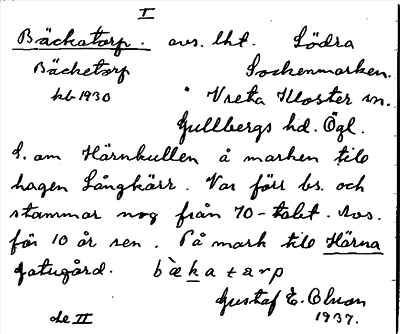 I
Bäckatorp. avs. lht. Södra
Bäcketorp Sockenmarken.
kb 1930 Vreta Kloster sn.
Gullbergs hd. Ögl.
S. om Härnkullen å marken till
hagen Långkärr. Var förr bs. och
stammar nog från 70-talet. Avs.
för 10 år sen. På mark till Härna
Gatugård. bækatarp
Gustaf E. Olson
se II 1937.